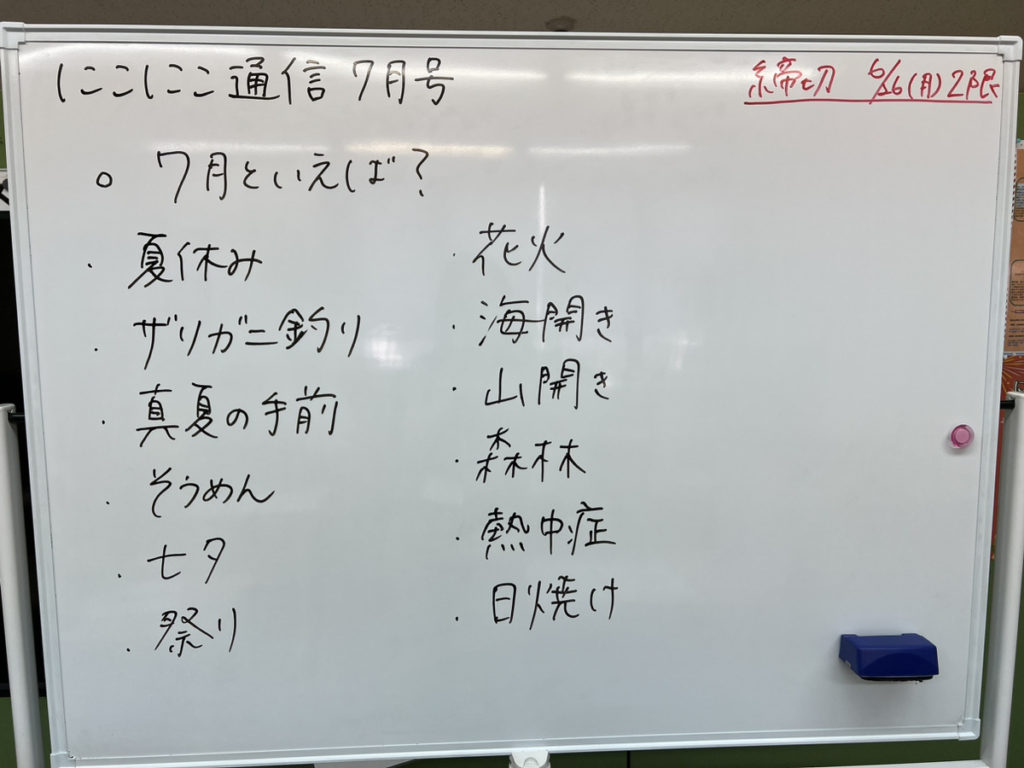 にこにこ通信 7月号
締切 6/16(月)2限
○ 7月といえば?
・夏休み
・ザリガニ釣り
・真夏の手前
・そうめん
・七夕
・祭り
・花火
・海開き
・山開き
・森林
・熱中症
・日焼け